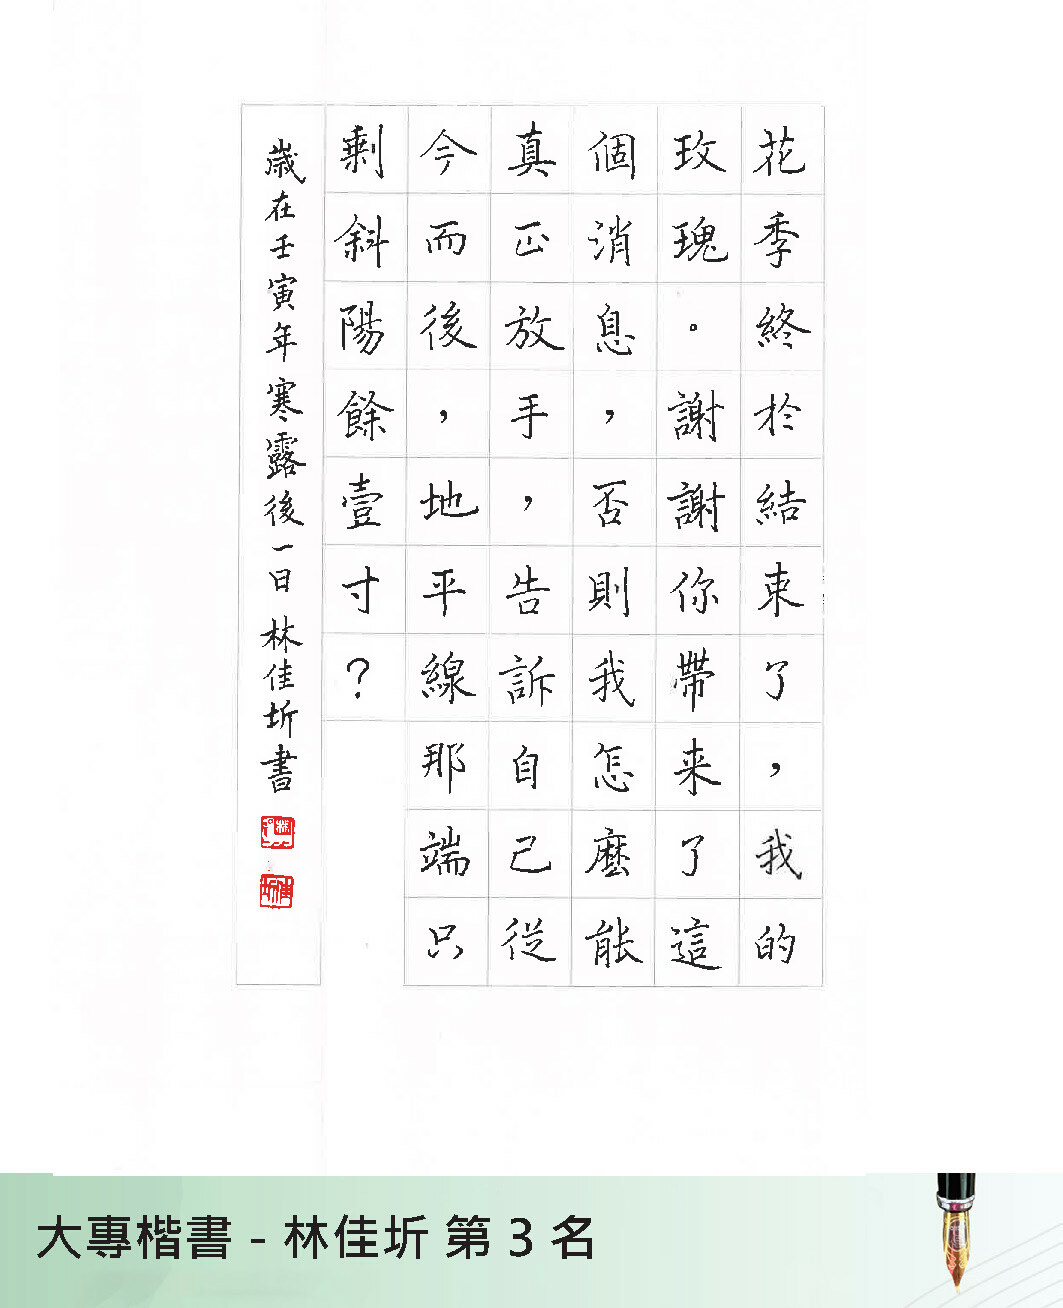 花季終於結束了，我的
玫瑰。謝謝你帶来了這
個消息，否則我怎麼能
真正放手，告訴自己從
今而後，地平線那端只
剩斜陽餘壹寸？
歲在壬寅年寒露後一日林佳圻書
大專楷書 - 林佳圻 第 3 名